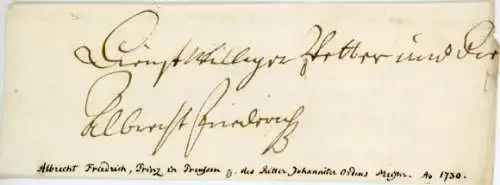 Dienstwilliger Vetter und Die
Albrecht Friedrich
Albrecht Friedrich, Prinz in Preussen g. des Ritter Johanniter Ordens Meister. Ao 1730.